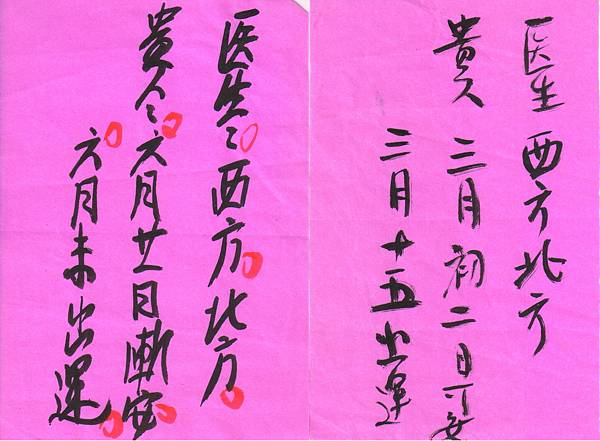 医生 西方北方
貴人 三月初二日可安
三月十五出運
医生 西方北方
貴人 六月廿一日漸安
六月末出運